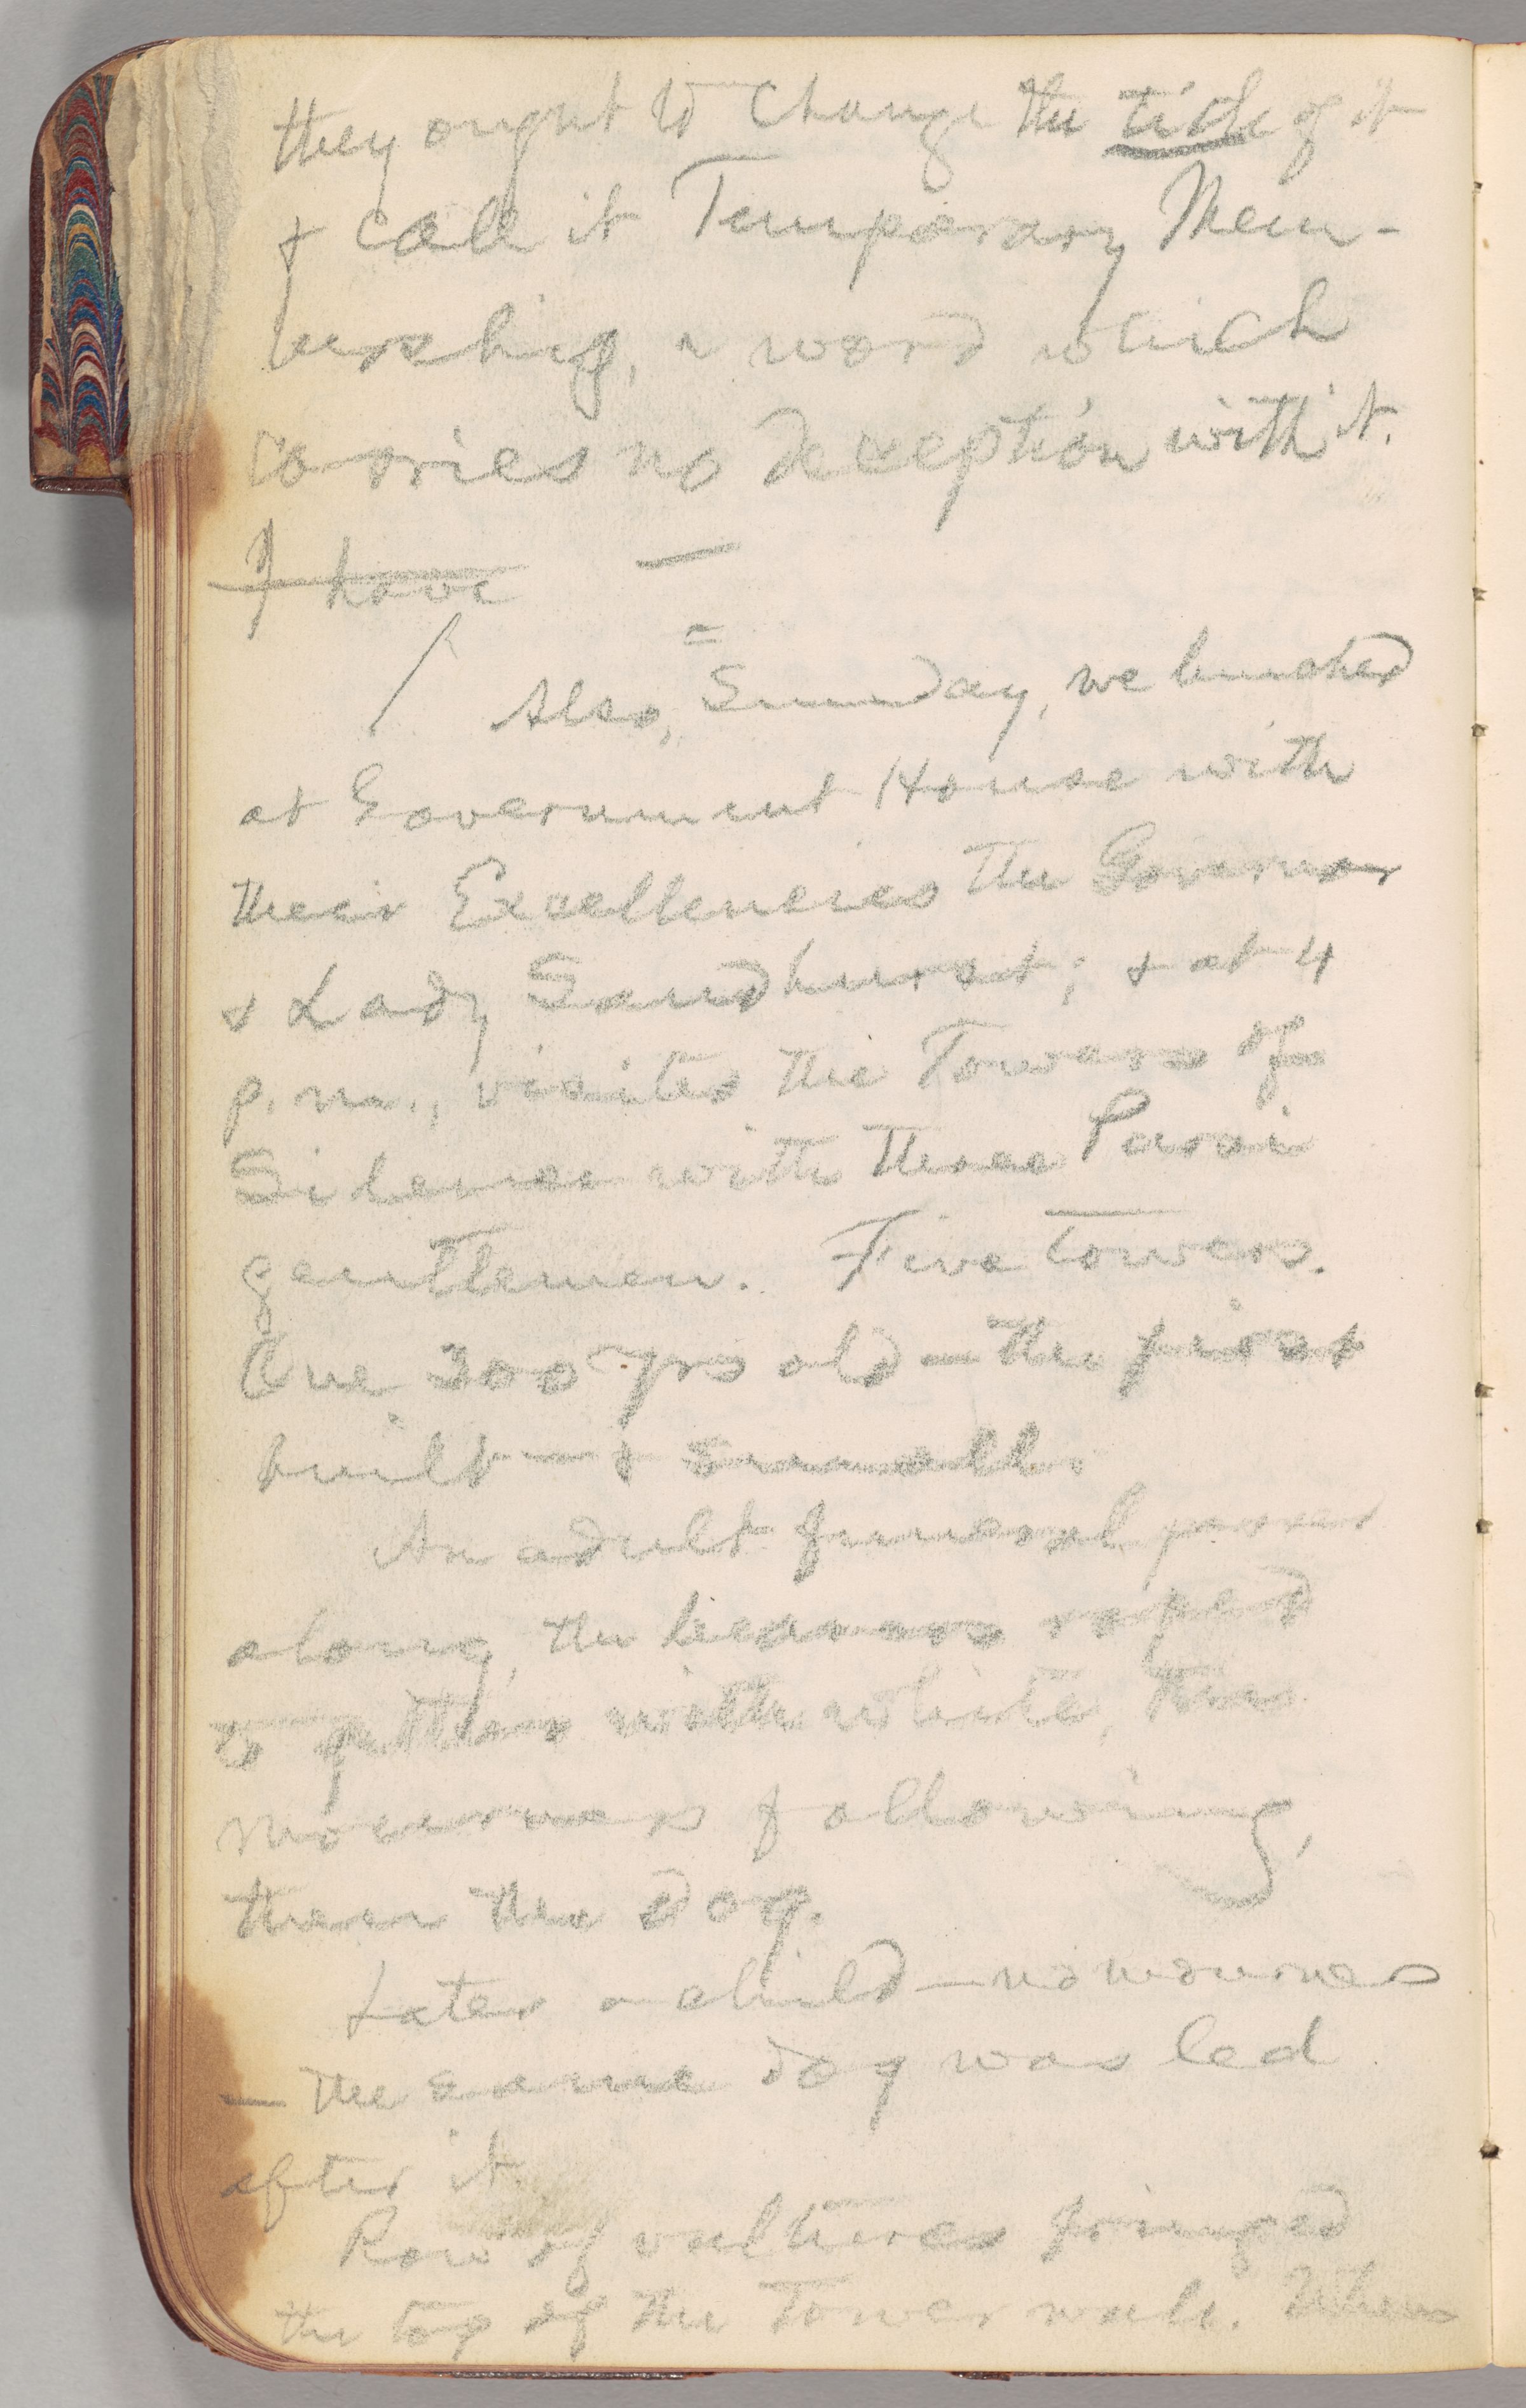 they ought to change the title of it
& call it Temporary Mem-
bership, a word which
carries no deception with it.
I have —
=
Also, Sunday, we lunched
at Government House with
their Excellencies the Governor
& Lady Sandhurst; & at 4
p. m., visited the Towers of
Silence with three Parsi
gentlemen. Five towers.
One 300 yrs old — the first
built — & small.
An adult funeral passed
along, the bearers roped
together with white, the
mourners following,
then the dog.
Later a child — no mourners
— the same dog was led
after it.
Row of vultures fringed
the top of the tower wall. When